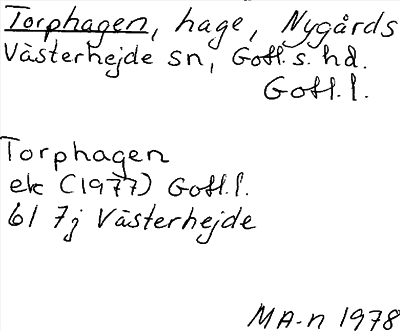 Torphagen, hage, Nygårds
Västerhejde sn, Gotl. s. hd.
Gotl. l.
Torphagen
ek (1977) Gotl. l.
6I 7j Västerhejde
MA-n 1978